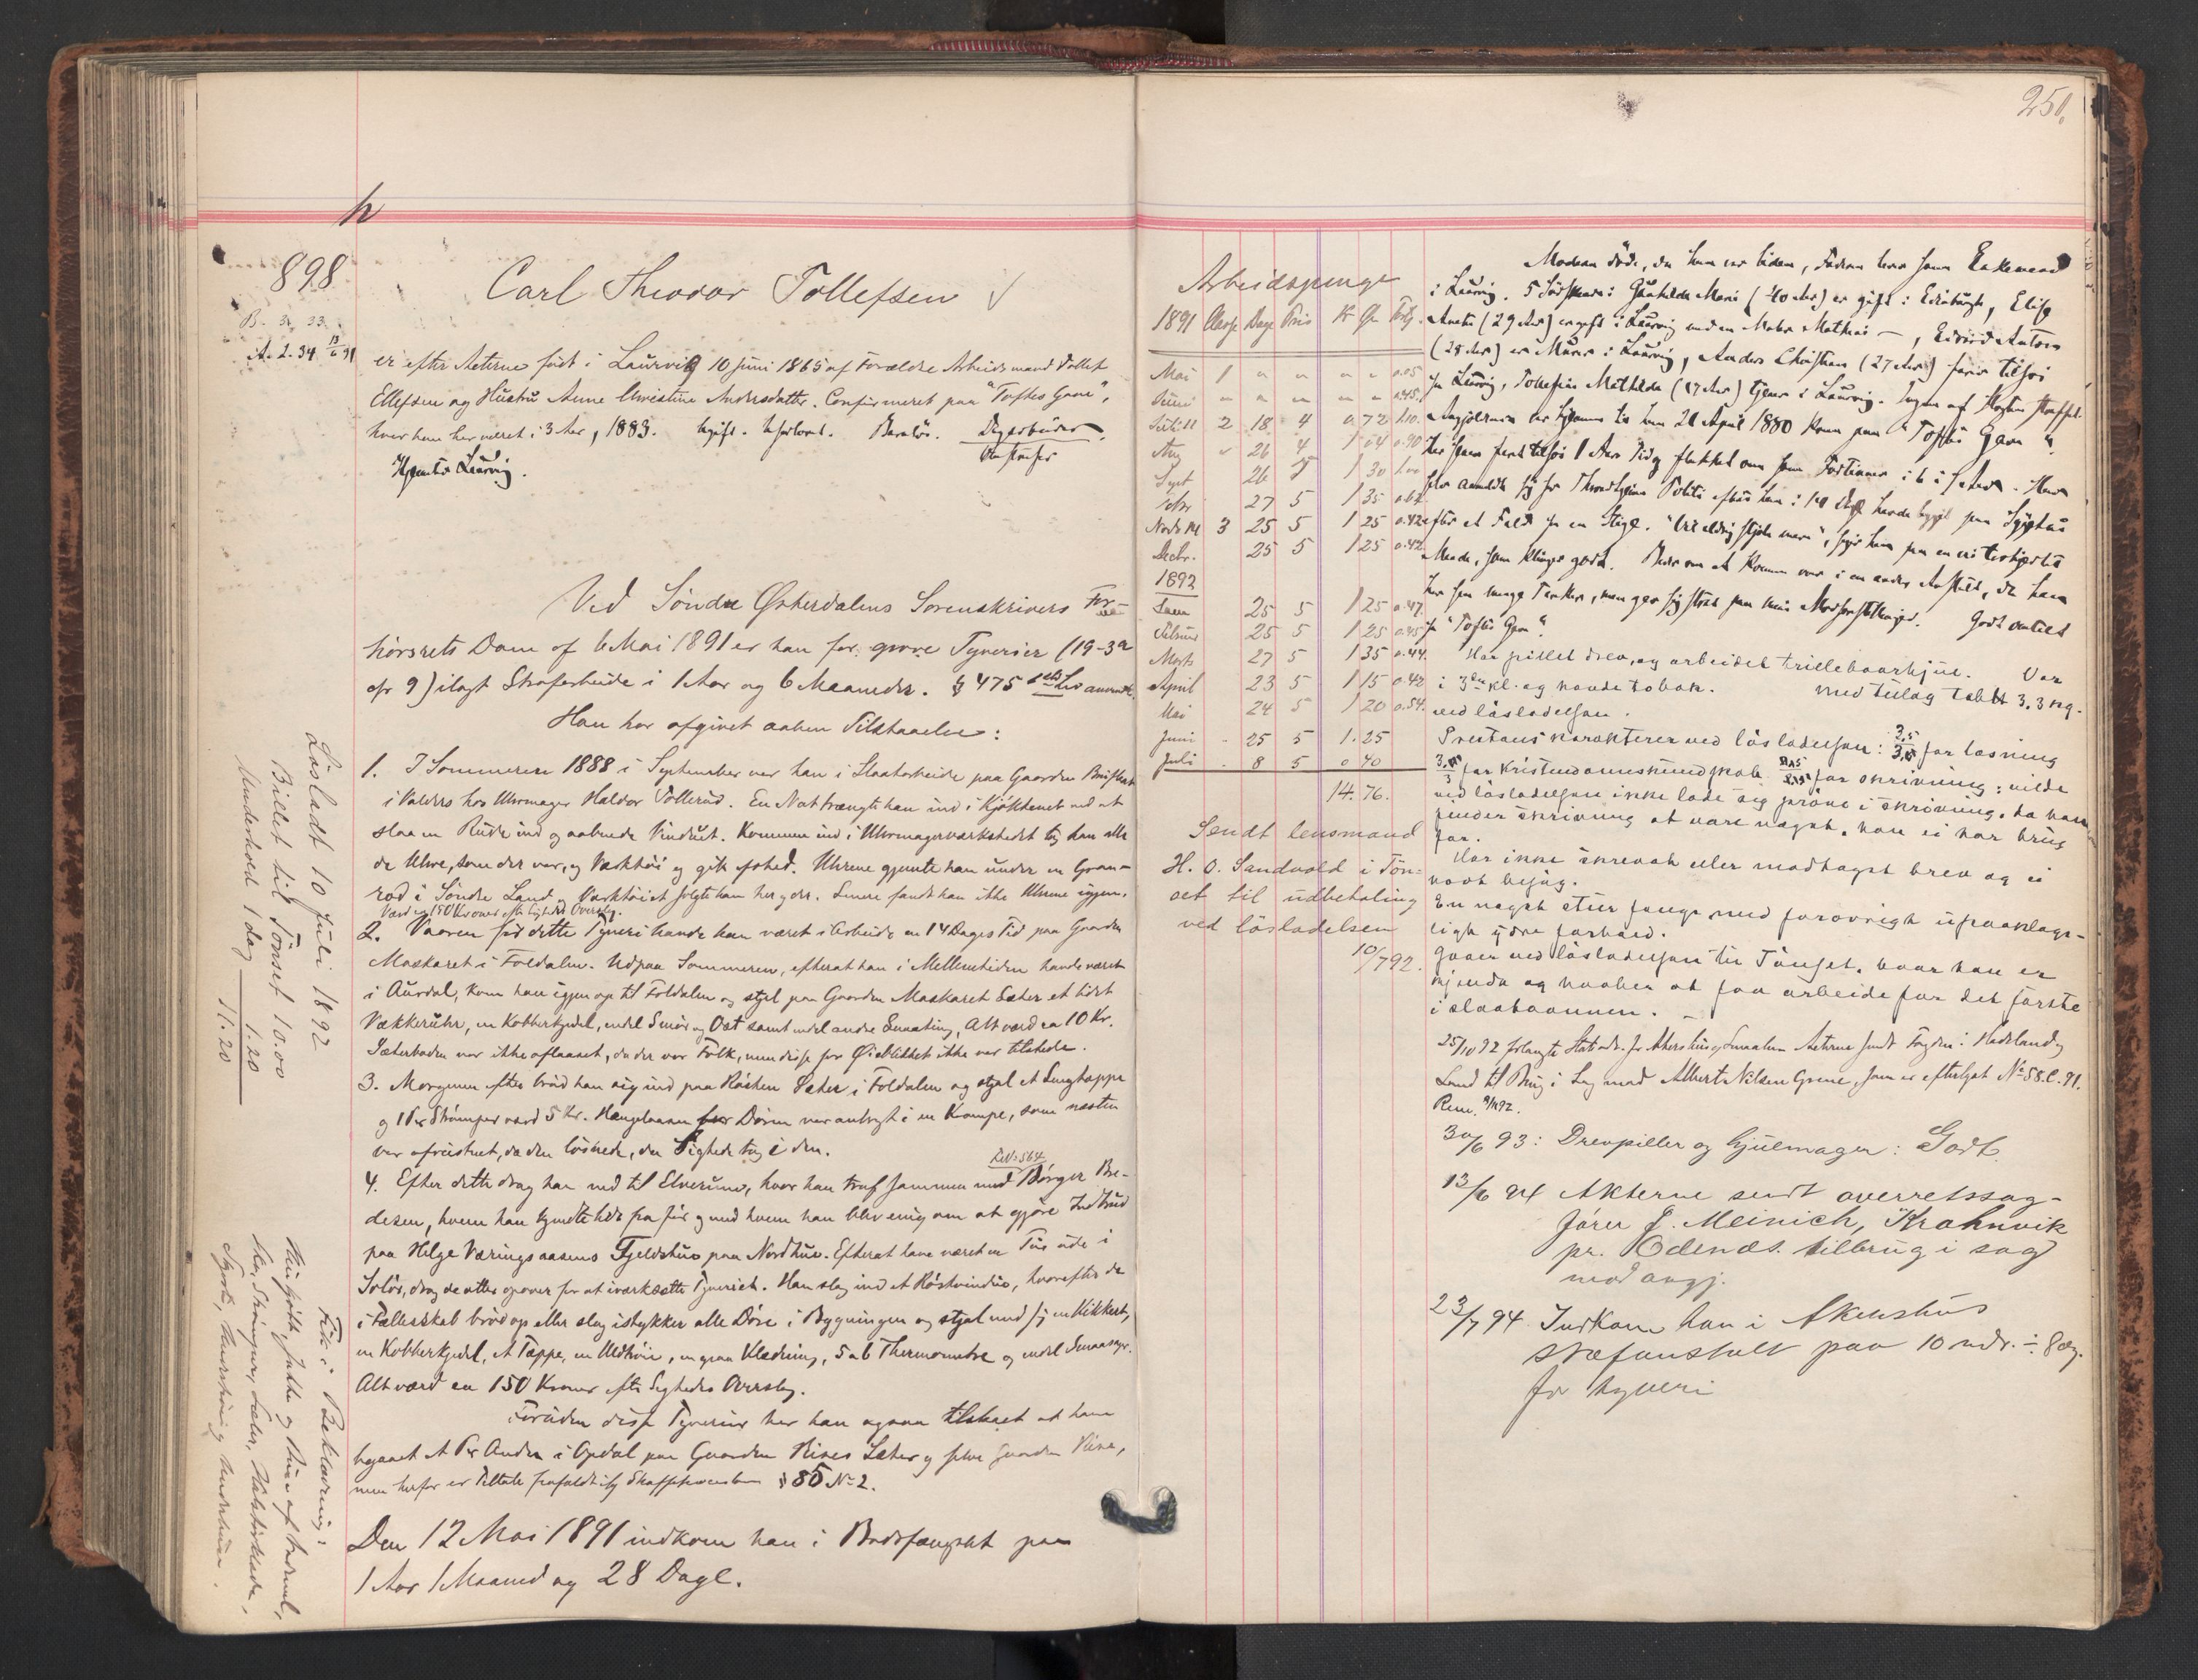 h
898
B. 3. 33.
A. 2. 34 13/6 91
Carl Theodor Tollefsen √
er efter Acterne født i Laurvig 10 Juni 1865 af Forældre Arbeidsmand Tollef
Ellefsen og Hustru Anne Christine Andersdatter. Confirmeret paa "Toftes Gave",
hvor han har været i 3 Aar, 1883. Ugift. Uforlovet. Barnløs. Dagarbeider.
Ustraffet
Hjemsted Laurvig.
Ved Søndre Østerdalens Sorenskrivers For-
hørsrets Dom af 6 Mai 1891 er han for grove Tyverier (19-3a
cfr 9) ilagt Strafarbeide i 1 Aar og 6 Maaneder. § 475 1ste Led anvendt.
Han har afgivet aaben Tilstaaelse:
1. I Sommeren 1888 i September var han i Slaatarbeide paa Gaarden
i Valders hos Uhrmager Haldor Tollerud. En Nat trængte han ind i Kjøkkenet ved at
slaa en Rude ind og aabnede Vinduet. Kommen ind i Uhrmagerværkstedet tog han alle
de Uhre, som der var, og Værktøi og gik afsted. Uhrene gjemte han under en Gran-
rod i Søndre Land og Værktøiet solgte han her og der. Senere fandt han ikke Uhrene igjen.
Værdi ca 150 Kroner efter Sigtedes Overslag.
2. Vaaren før dette Tyveri havde han været i Arbeide en 14 Dages Tid paa Gaarden
Moskaret i Foldalen. Udpaa Sommeren, efterat han i Mellemtiden havde været
i Aurdal, kom han igjen op til Foldalen og stjal paa Gaarden Moskaret Sæter et lidet
Vækkeruhr, en Kobberkjedel, endel Smør og Ost samt endel andre Smaating, Alt værd ca 10 Kr.
Sæterboden var ikke aflaaset, da der var Folk, men disse for Øieblikket ikke var tilstede.
3. Morgenen efter brød han sig ind paa Råsten Sæter i Foldalen og stjal et Sengtæppe
og 1 Par Strømper værd 5 Kr. Hængelaasen for Døren var anbragt i en Krampe, som næsten
var afrustnet, da den løsnede, da Sigtede tog i den.
Lit. 564
4. Efter dette drog han ned til Elverum, hvor han traf sammen med Børger Bre-
desen, hvem han kjendte lidt fra før og med hvem han blev enig om at gjøre Indbrud
paa Helge Væringsaasens Fjeldstue paa Nordhue. Efterat have været en Tur ude i
Solør, drog de atter opover for at iværksætte Tyveriet. Han slog ind et Røstvindue, hvorefter de
i Fællesskab brød op eller slog istykker alle Døre i Bygningen og stjal med sig en Kikkert,
en Kobberkjedel, et Tæppe, en Uldtrøie, en graa Klædning, 5 a 6 Thermometre og endel Smaasager.
Alt værd ca 150 Kroner efter Sigtedes Overslag.
Foruden disse Tyverier har han ogsaa tilstaaet at have
begaaet et Par Andre i Opdal paa Gaarden Rises Sæter og selve Gaarden Rise,
men herfor er Tiltale frafaldt ifg Straffeprocesloven § 85 No 2.
Den 12 Mai 1891 indkom han i Bodsfængslet paa
1 Aar 1 Maaned og 28 Dage.
Løsladt 10 Juli 1892
Billet til Tönset 10.00
Underhold 1 dag 1.20
11.20
Fik i Beklædning:
Hue, Jakke og Buxe af Vadmel,
Sko, Strømper, Seler, Halstørklæde,
Skjorte, Underbuxe.
250.
Arbeidspenge
1891 Classe Dage Pris Kr Øre
Mai 1 " " " " 0.05
Juni " " " " " 0.45
Juli 11 2 18 4 0 72 1.10
Aug " 26 4 1 04 0.90
Sept 26 5 1 30
Octbr 27 5 1 35 0.67
Novbr 3 25 5 1 25 0.42
Decbr. 25 5 1 25 0.42
1892
Janu 25 5 1 25 0.47
Februar 25 5 1 25 0.45
Marts 27 5 1 35 0.44
April 23 5 1 15 0.42
Mai 24 5 1 20 0.54
Juni 25 5 1.25
Juli 8 5 0 40
14. 76.
Sendt lensmand
H. O. Sandvold i Tön-
set til udbetaling
ved lösladelsen
10/7 92.
Moderen døde, da han var liden, Faderen lever som Enkemand
i Laurvig. 5 Sødskende: Gunhilde Marie (40 Aar) er gift i Edinburgh, Elise
Anette (29 Aar) er gift i Laurvig med en Maler Mathias —, Edvard Anton
(28 Aar) er Murer i Laurvig, Anders Christian (27 Aar) farer tilsøs
fra Laurvig, Tolline Mathilde (17 Aar) tjener i Laurvig. Ingen af Slægten straffet.
Angjældende var hjemme til han 21 April 1880 kom paa "Toftes Gave".
Har siden faret tilsøs 1 Aars Tid og flakket om som i 6 i 7 Aar. Har
selv anmeldt sig for Throndhjems Politi efter han i 14 Dage havde ligget paa Sygehus
efter et Fald fra en Stige. "Vil aldrig stjæle mere", siger han paa en
Maade, som klinger godt. Beder om at komme over i en anden Anstalt, da han
har saa mange Tanker, men gav sig strax paa mine Modforestillinger. Godt omtalt
fra "Toftes Gave".
Har pillet drev, og arbeidet trillebaarhjul. Var
i 3die kl. og havde tobak. med tillæg tabt 3.3 kg.
ved lösladelsen.
Prestens karakterer ved lösladelsen: 3,5 for læsning
for Kristendomskundskab for skrivning; vilde
ved lösladelsen ikke lade sig pröve i skrivning, da han
finder skrivning at være noget, han ei har brug
for.
Har ikke skrevet eller modtaget brev og ei
havt besög.
En noget stur fange med forövrigt upaaklage-
ligt ydre forhold.
Gaar ved lösladelsen til Tönset, hvor han er
kjendt og haaber at faa arbeide for det förste
i slaataannen. –
25/10 92 forlangte Statsadv. for Akershus og Smaalen Acterne sendt Fogden i Hadeland og
Land til Brug i Sag mod Albert Nilsen Grene, som er efterlyst No 58.C.91.
Rem.
30/6 93: Drevpiller og Hjulmager: Godt.
13/6 94 Akterne sendt overretssag-
förer J. Meinich, Krohnvik
pr. Odenæs. tilbrug i sag
mod angj.
23/7 94 Indkom han i Akershus
strafanstalt paa 10 mdr. ÷ 8 dg.
for tyveri